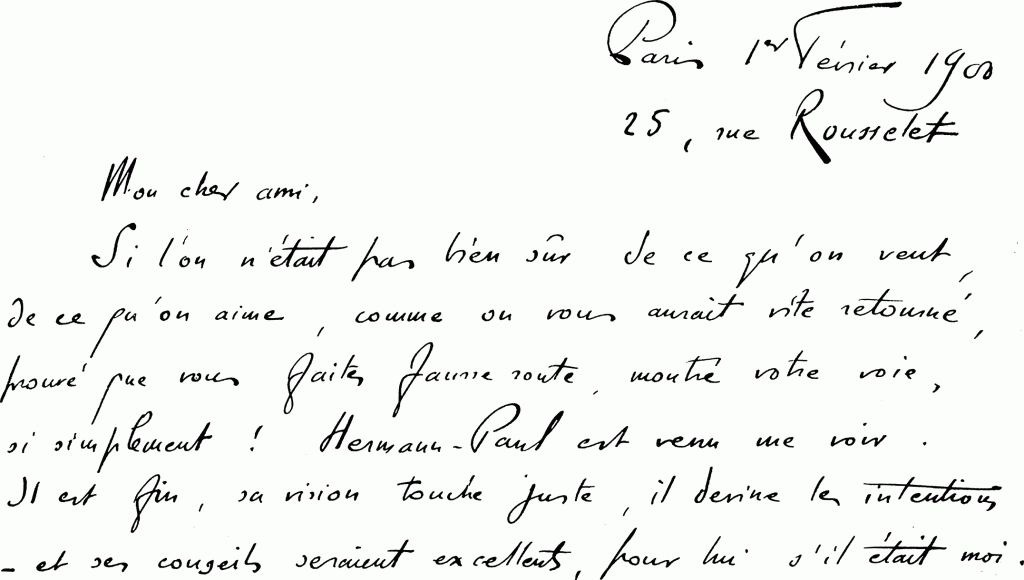 Paris 1er Février 1900
25, rue Rousselet
Mon cher ami,
Si l'on n'était pas bien sûr de ce qu'on veut,
de ce qu'on aime, comme on vous aurait vite retourné,
prouvé que vous faites fausse route, montré votre voie,
si simplement ! Hermann-Paul est venu me voir.
Il est fin, sa vision touche juste, il devine les intentions
- et ses conseils seraient excellents, pour lui s'il était moi.